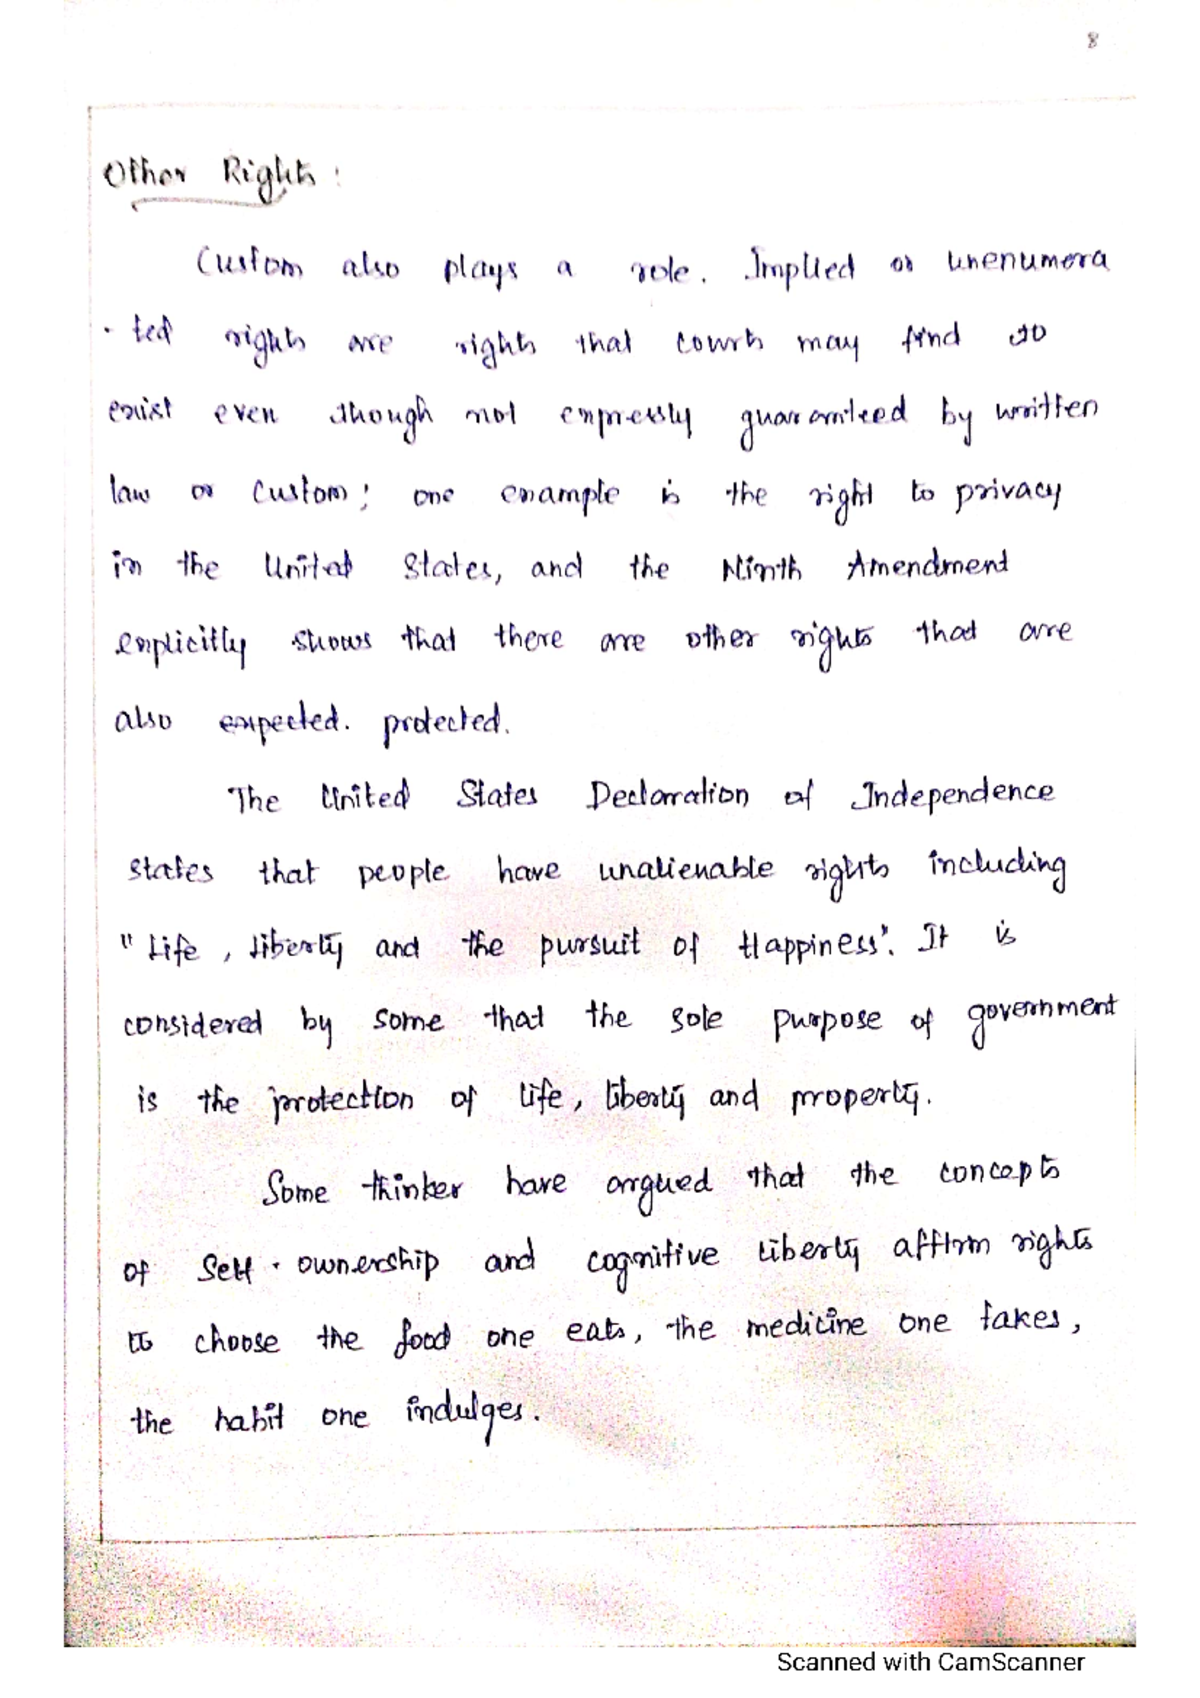 8
Other Rights :
Custom also plays a role. Implied or unenumera
- ted rights are rights that courts may find to
exist even though not expressly guaranteed by written
law or custom; one example is the right to privacy
in the United States, and the Ninth Amendment
explicitly shows that there are other rights that are
also expected. protected.
The United States Declaration of Independence
states that people have unalienable rights including
" Life, liberty and the pursuit of Happiness". It is
considered by some that the sole purpose of government
is the protection of life, liberty and property.
Some thinker have argued that the concepts
of Self - ownership and cognitive liberty affirm rights
to choose the food one eats, the medicine one takes,
the habit one indulges.
Scanned with CamScanner